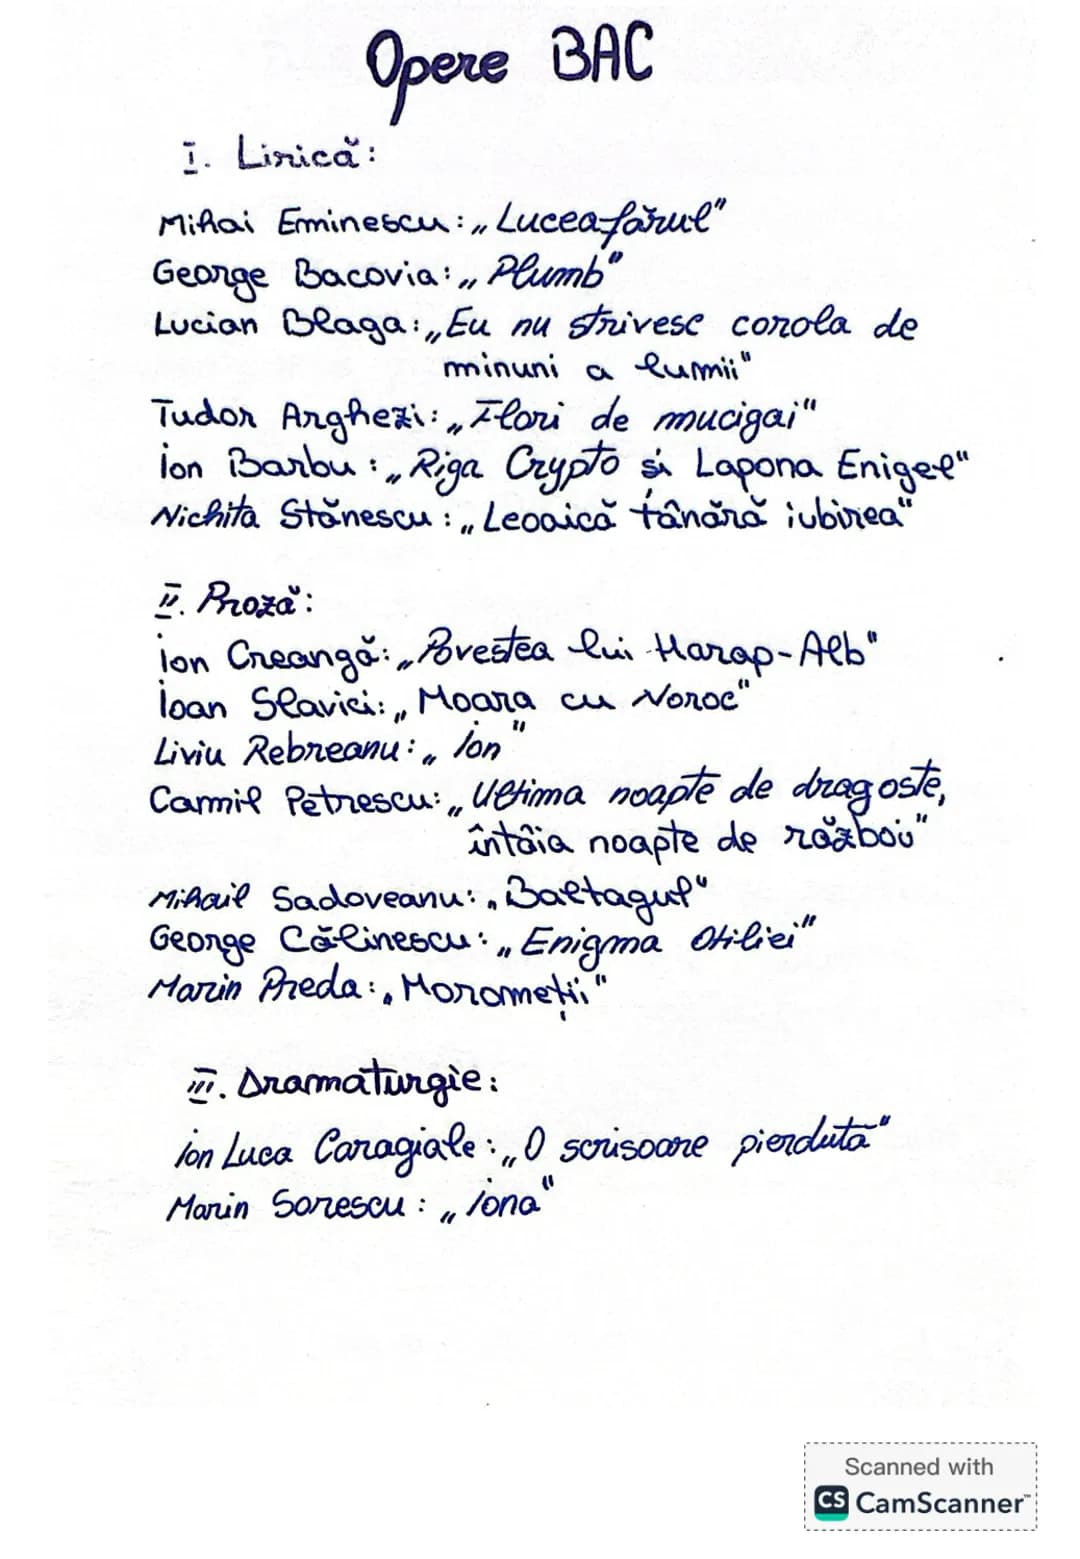 Opere BAC
I. Lirică:
Mihai Eminescu: „Luceafărul"
George Bacovia: „Plumb"
Lucian Blaga: „Eu nu strivesc corola de
minuni a lumii"
Tudor Arghezi: „Flori de mucigai"
Ion Barbu: „Riga Crypto și Lapona Enigel"
Nichita Stănescu: „Leoaică tânără iubirea"
II. Proză:
Ion Creangă: „Povestea lui Harap-Alb"
Ioan Slavici: „Moara cu Noroc"
Liviu Rebreanu: „Ion"
Camil Petrescu: „Ultima noapte de dragoste,
întâia noapte de război"
Mihail Sadoveanu: „Baltagul"
George Călinescu: „Enigma Otiliei"
Marin Preda: „Moromeții"
III. Dramaturgie:
Ion Luca Caragiale: „O scrisoare pierduta"
Marin Sorescu: „Iona"
Scanned with
CS CamScanner™